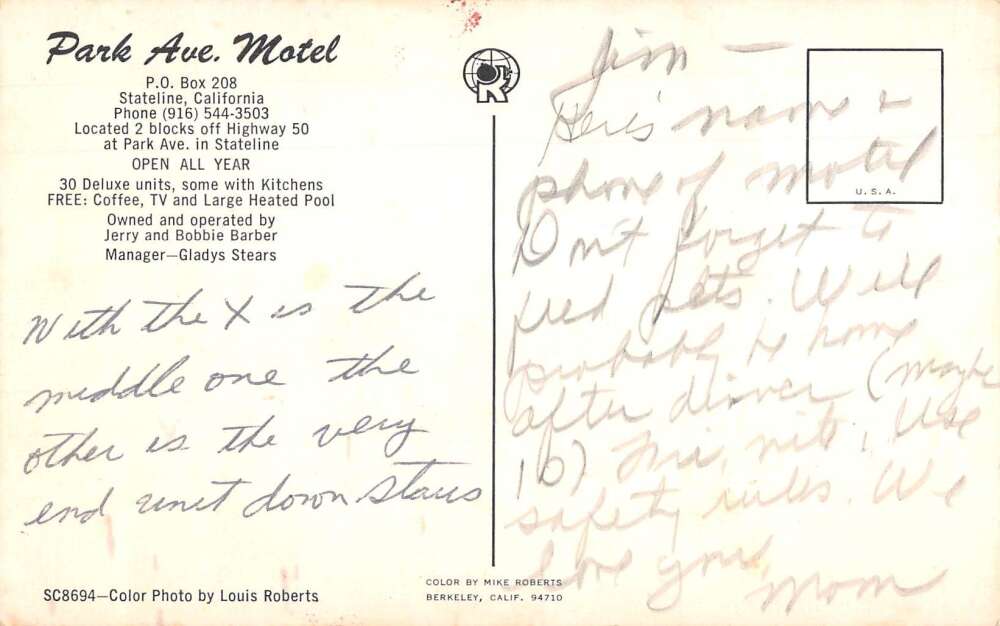 Park Ave. Motel
P.O. Box 208
Stateline, California
Phone (916) 544-3503
Located 2 blocks off Highway 50
at Park Ave. in Stateline
OPEN ALL YEAR
30 Deluxe units, some with Kitchens
FREE: Coffee, TV and Large Heated Pool
Owned and operated by
Jerry and Bobbie Barber
Manager—Gladys Stears
With the X is the
middle one the
other is the very
end unit down stairs
SC8694—Color Photo by Louis Roberts
R
COLOR BY MIKE ROBERTS
BERKELEY, CALIF. 94710
U.S.A.
Jim —
Here's name &
phone of motel
Don't forget to
feed pets. We'll
probably be home
after dinner (maybe
10) nite, Use
safety rules. We
love you,
Mom